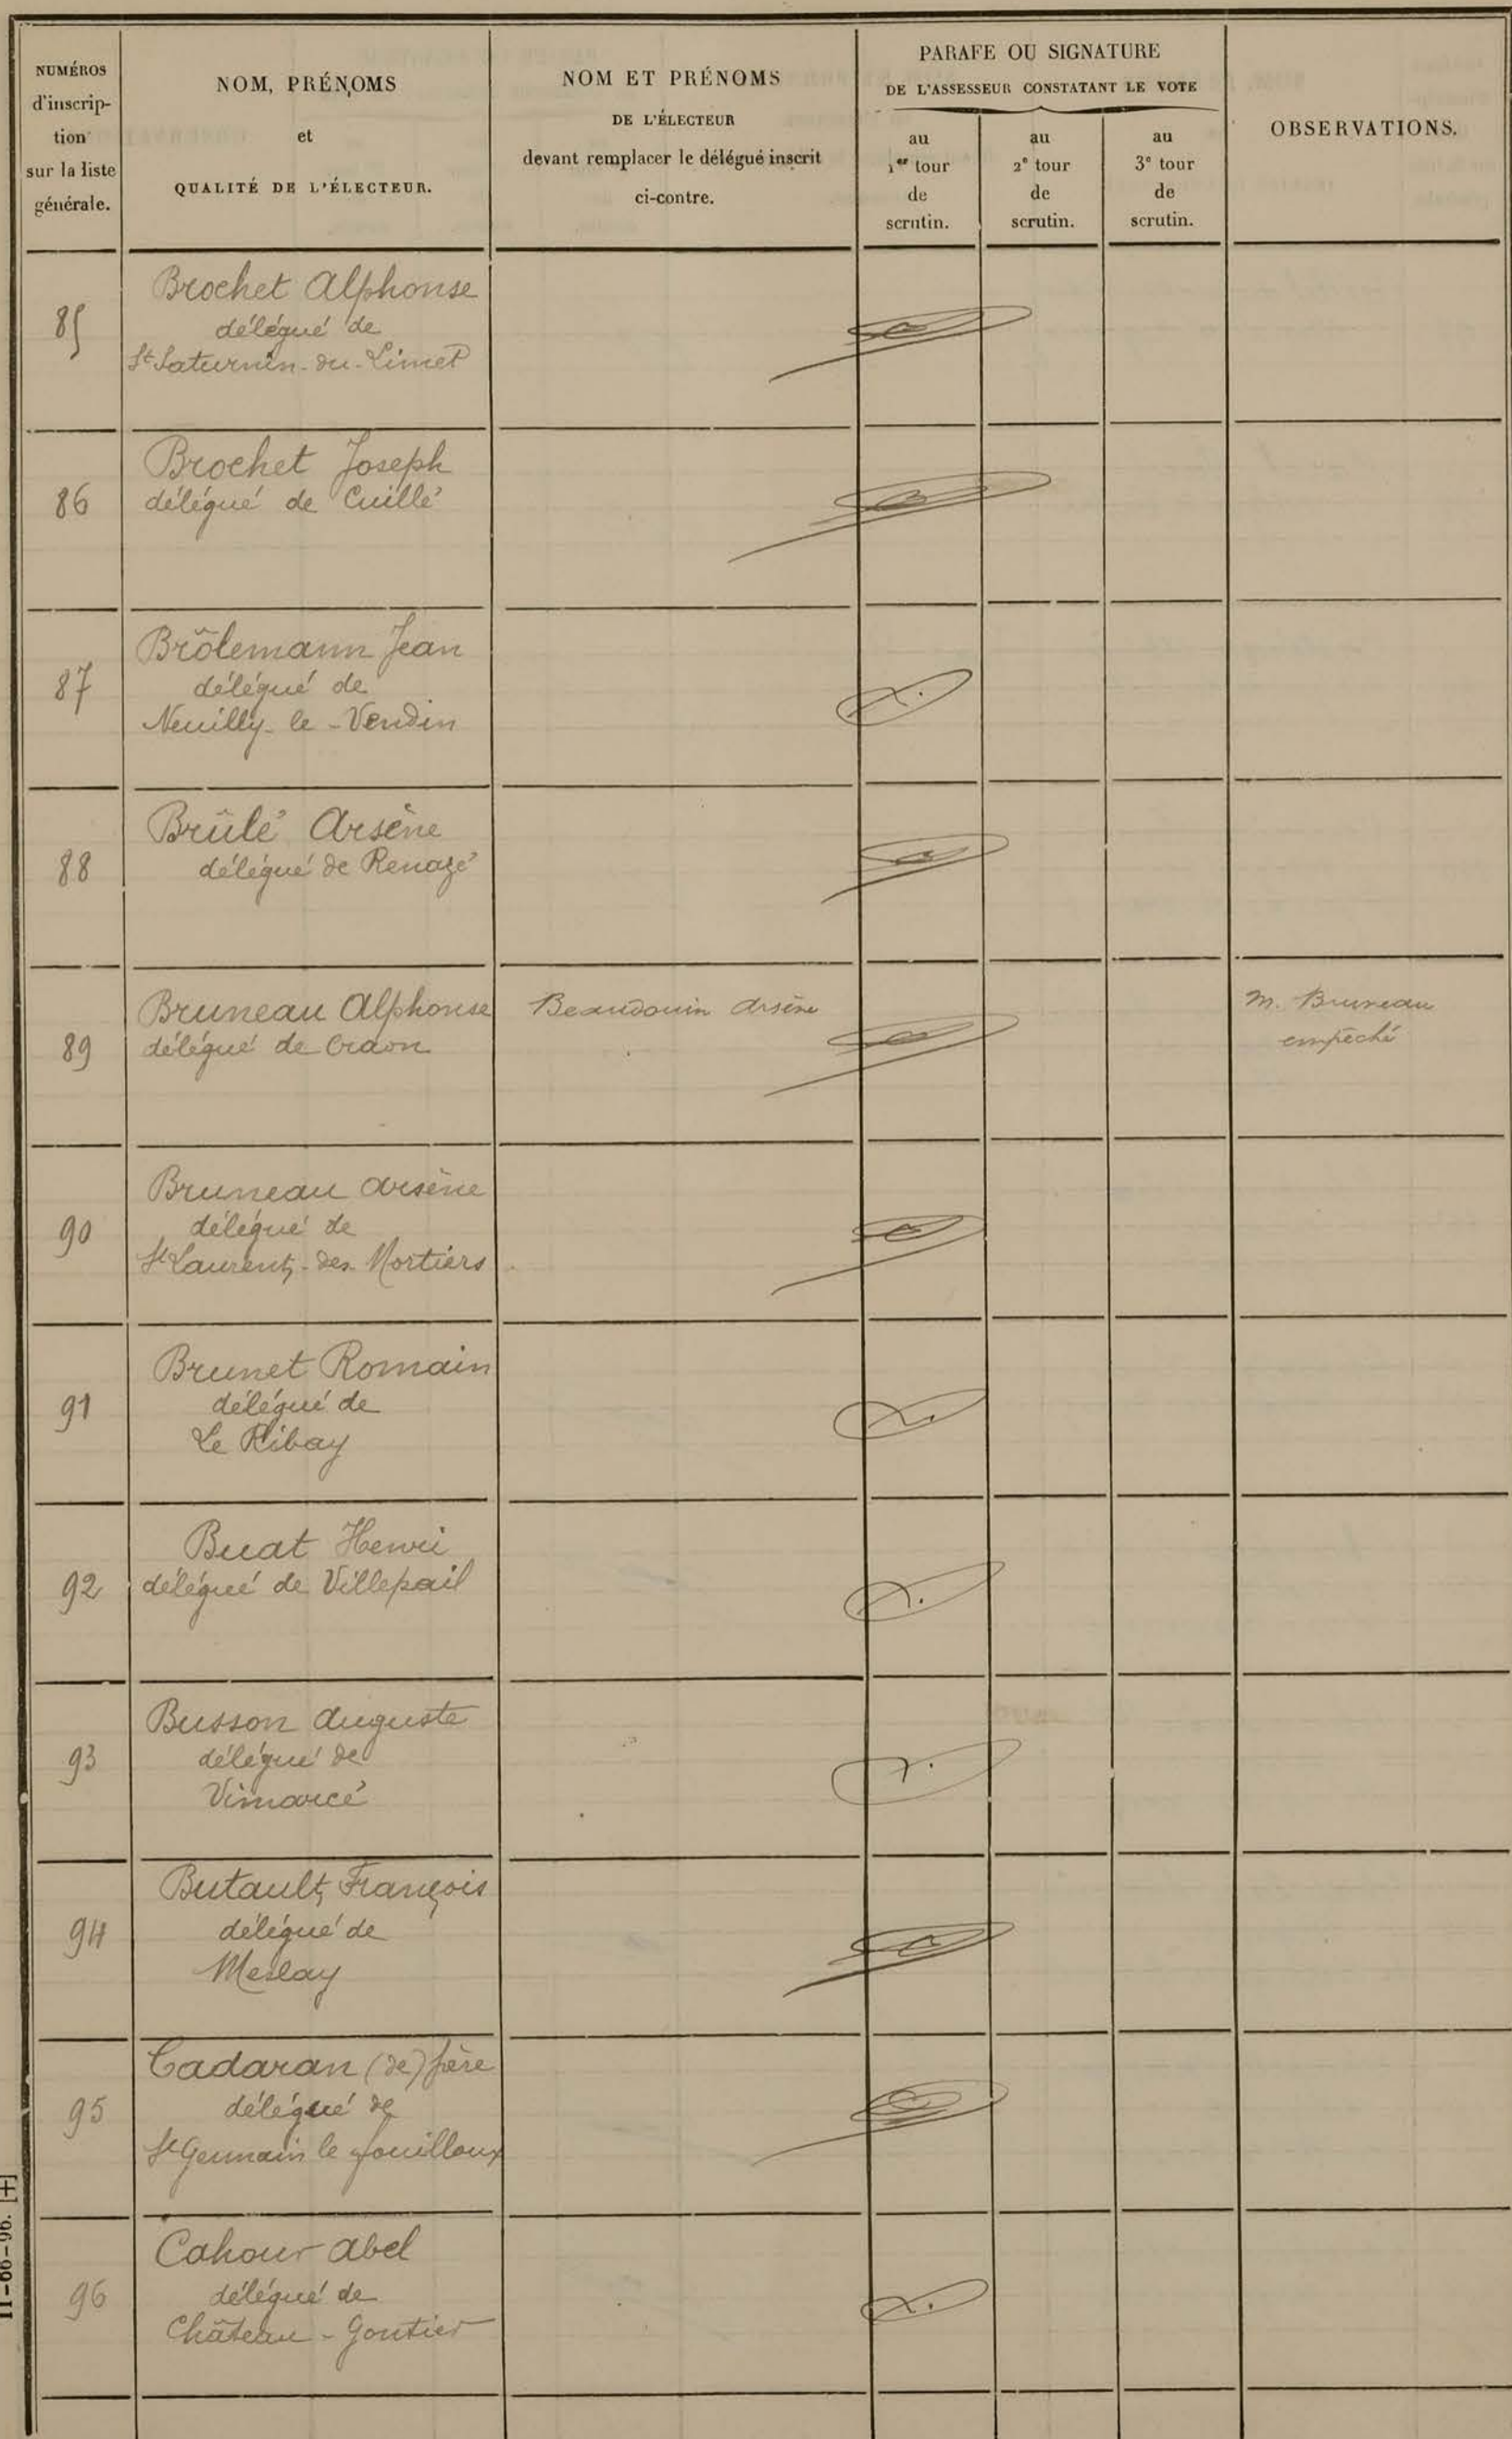 NUMÉROS
d'inscrip-
tion
sur la liste
générale.
NOM, PRÉNOMS
et
QUALITÉ DE L'ÉLECTEUR.
NOM ET PRÉNOMS
DE L'ÉLECTEUR
devant remplacer le délégué inscrit
ci-contre.
PARAFE OU SIGNATURE
DE L'ASSESSEUR CONSTATANT LE VOTE
au
1er tour
de
scrutin.
au
2e tour
de
scrutin.
au
3e tour
de
scrutin.
OBSERVATIONS.
85
Brochet Alphonse
délégué de
St Saturnin-du-Limet
86
Brochet Joseph
délégué de Cuillé
87
Brölemann Jean
délégué de
Neuilly-le-Vendin
88
Brûlé Arsène
délégué de Renazé
89
Bruneau Alphonse
délégué de Craon
Beaudouin Arsène
M. Bruneau
empêché
90
Bruneau Arsène
délégué de
St Laurent-des-Mortiers
91
Brunet Romain
délégué de
Le Ribay
92
Buat Henri
délégué de Villepail
93
Busson Auguste
délégué de
Vimarcé
94
Butault François
délégué de
Meslay
95
Cadaran (de) père
délégué de
St Germain le fouilloux
96
Cahour Abel
délégué de
Château-Gontier
11-66-96. [+]